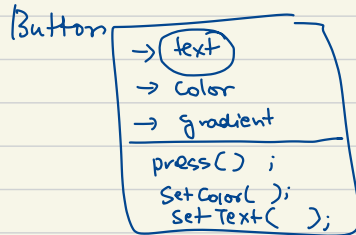 Button
→ text
→ color
→ gradient
press() ;
SetColor( );
SetText( );